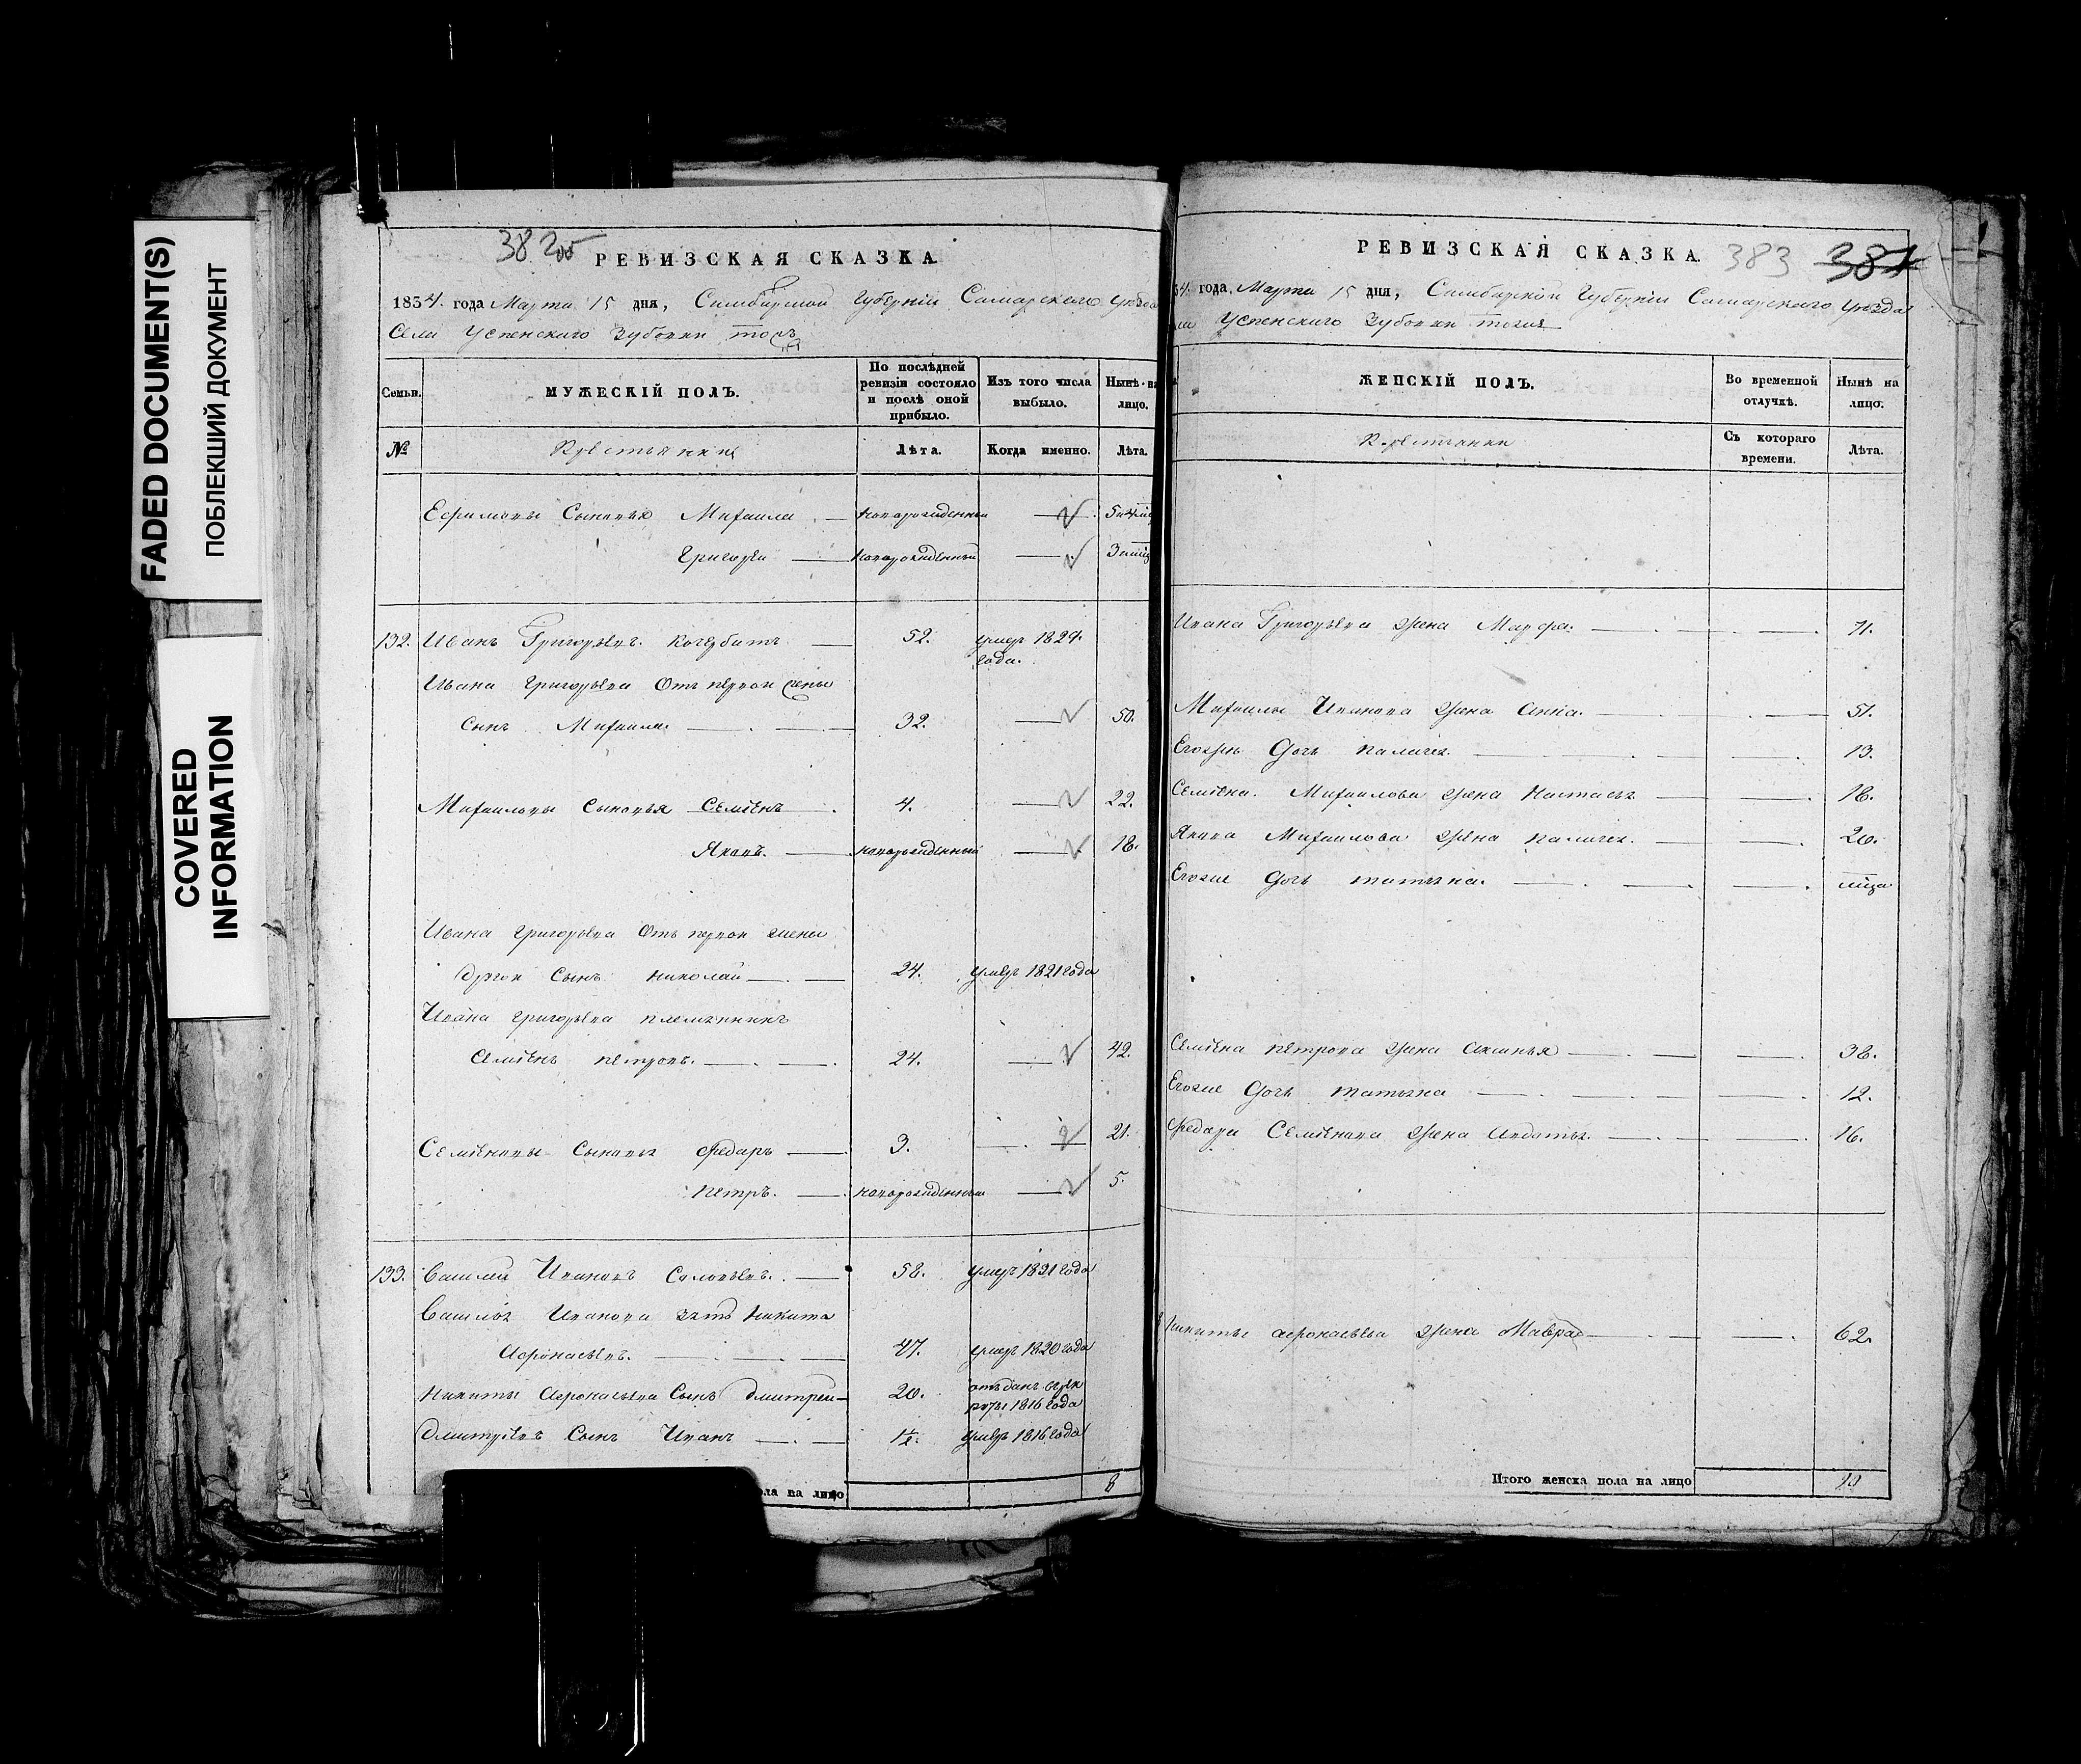 FADED DOCUMENT(S)
ПОБЛЕКШИЙ ДОКУМЕНТ
COVERED
INFORMATION
382
РЕВИЗСКАЯ СКАЗКА
1834. года Марта 15 дня, Симбирской Губернии Самарскаго уезда
Села Успенскаго Зубовки тожъ
Семьи.
МУЖЕСКІЙ ПОЛЪ.
По послѣдней ревизіи состояло и послѣ оной прибыло.
Изъ того числа выбыло.
Нынѣ на лицо.
№
Крестьяне
Лѣта.
Когда именно.
Лѣта.
Ефимовы Сыновья Михаила — новорожденный —
Григорей — новорожденный —
132. Иванъ Григорьевъ Кочербитъ — 52. умеръ 1829. года.
Ивана Григорьева Отъ первой жены
Сынъ Михаила. — 32. — 50.
Михайловы Сыновья Семёнъ 4. — 22.
Яковъ. — новорожденный — 18.
Ивана Григорьева Отъ первой жены
другой Сынъ Николай — 24. умеръ 1821 года
Ивана Григорьева племянникъ
Семёнъ петровъ. — 24. — 42.
Семёновы Сыновья Федаръ — 3. — 21.
Петръ. — новорожденный — 5.
133. Василей Ивановъ Соловьевъ. — 58. умеръ 1821 года
Василья Иванова зять Никита
Афонасьевъ. — 47. умеръ 1820 года
Никиты Афонасьева Сынъ Дмитрей — 20. отъданъ въ рек
руты 1816 года
Дмитріевъ Сынъ Иванъ — 1½. умеръ 1816 года
пола на лицо 8
РЕВИЗСКАЯ СКАЗКА. 383 381
34. года, Марта 15 дня, Симбирской Губернии Самарскаго уезда
ла Успенскаго Зубовки тожъ
ЖЕНСКІЙ ПОЛЪ.
Во временной отлучкѣ.
Нынѣ на лицо.
Крестьянки
Съ котораго времени.
Лѣта.
Ивана Григорьева жена Марфа. — 71.
Михайлы Иванова жена Анна. — 51.
Егожъ дочь палагея. — 13.
Семёна Михайлова жена Настасья — 18.
Якова Михайлова жена палагея. — 20.
Егоже дочь татьяна. —
Семёна петрова жена Аксинья — 38.
Егоже дочь татьяна — 12.
Федара Семёнова жена Авдотья. — 16.
Никиты афонасьева жена Мавра — 62.
Итого женска пола на лицо 10